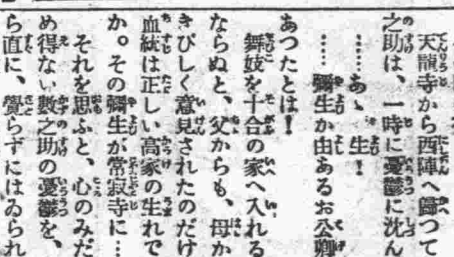 天龍寺から西陣へ歸つて
之助は、一時に憂鬱に沈ん
……あゝ彌生!
……彌生が由あるお公卿
あつたとは!
舞妓を十合の家へ入れる
ならぬと、父からも、母か
きびしく意見されたのだけ
血統は正しい高家の生れで
か。その彌生が常寂寺に…
それを思ふと、心のみだ
め得ない數之助の憂鬱を、
ら直に、覺らずにはゐられ